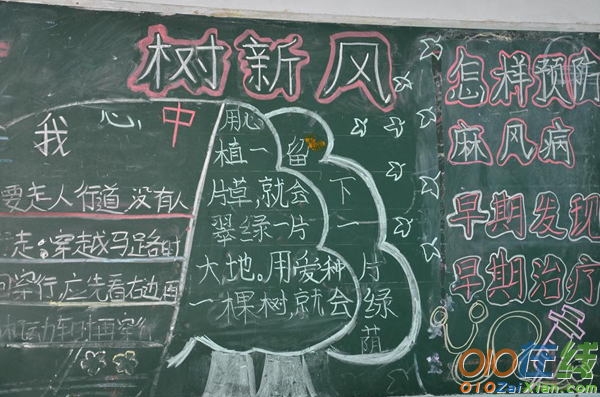 树新风
我心中
要走人行道,没有人
走:穿越马路时
穿行,应先看右边再
动车时再穿行
用心
植一
片草,就会
翠绿一片
大地。用爱种
一棵树,就会
留下一片绿荫
怎样预防
麻风病
早期发现
早期治疗
010在线
010ZaiXian.com